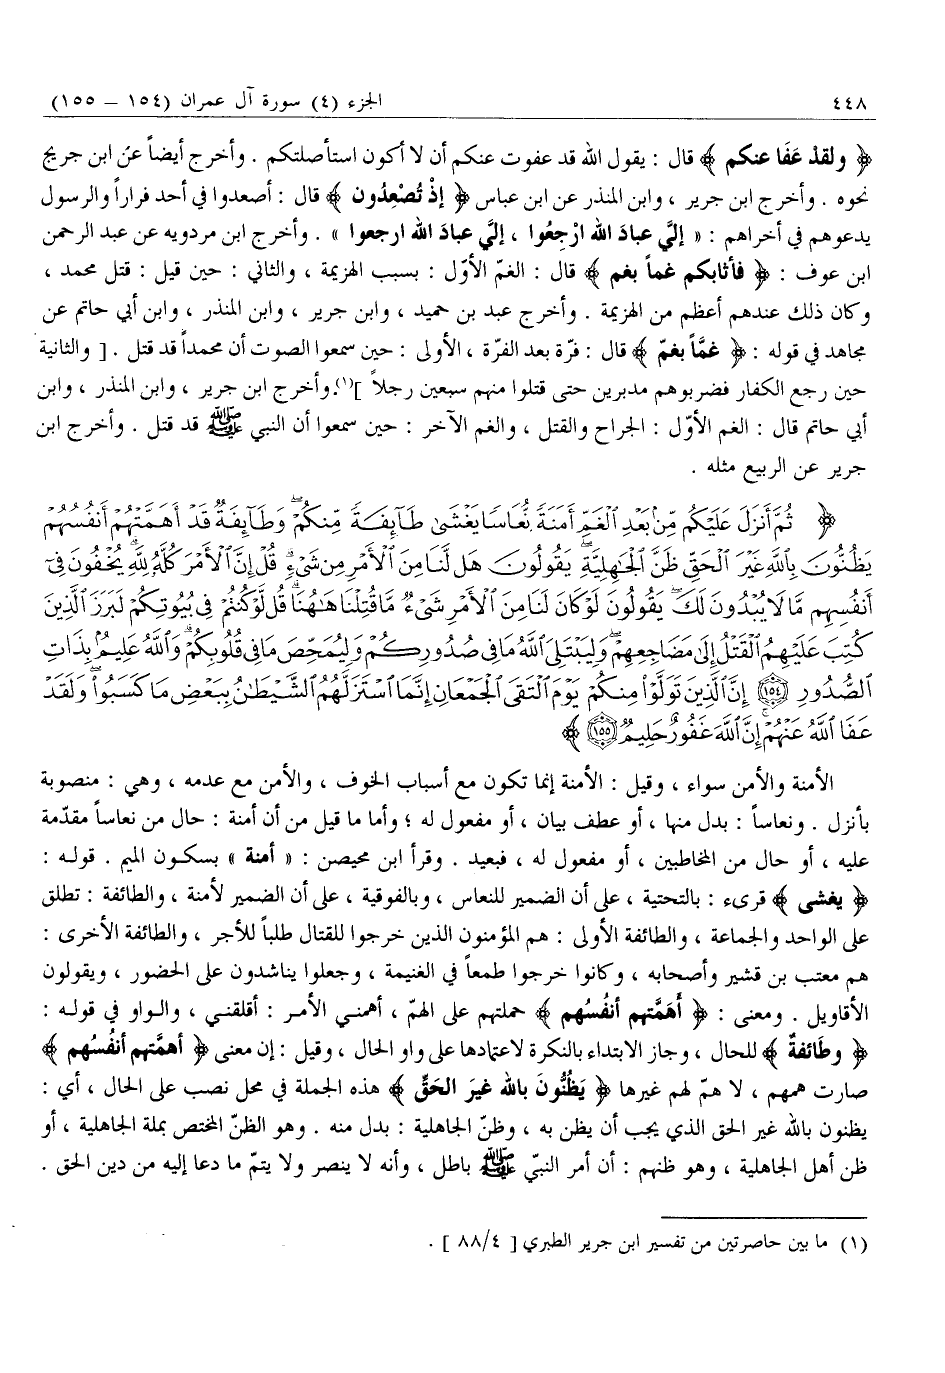 ٤٤٨ الجزء (٤) سورة آل عمران (١٥٤ – ١٥٥)
﴿ ولقدْ عَفَا عنكم ﴾ قال : يقول الله قد عفوت عنكم أن لا أكون استأصلتكم . وأخرج أيضاً عن ابن جريج
نحوه . وأخرج ابن جرير ، وابن المنذر عن ابن عباس ﴿ إذْ تُصْعِدُون ﴾ قال : أصعدوا في أحد فراراً والرسول
يدعوهم في أخراهم : « إليَّ عبادَ الله ارْجِعُوا ، إليَّ عبادَ الله ارجعوا » . وأخرج ابن مردويه عن عبد الرحمن
ابن عوف : ﴿ فأثابكم غماً بغم ﴾ قال : الغمّ الأوّل : بسبب الهزيمة ، والثاني : حين قيل : قتل محمد ،
وكان ذلك عندهم أعظم من الهزيمة . وأخرج عبد بن حميد ، وابن جرير ، وابن المنذر ، وابن أبي حاتم عن
مجاهد في قوله : ﴿ غمَّاً بغمّ ﴾ قال : فرّة بعد الفرّة ، الأولى : حين سمعوا الصوت أن محمداً قد قتل . [ والثانية
حين رجع الكفار فضربوهم مدبرين حتى قتلوا منهم سبعين رجلاً ](١).وأخرج ابن جرير ، وابن المنذر ، وابن
أبي حاتم قال : الغم الأوّل : الجراح والقتل ، والغم الآخر : حين سمعوا أن النبي ﷺ قد قتل . وأخرج ابن
جرير عن الربيع مثله .
﴿ ثُمَّ أَنزَلَ عَلَيْكُم مِّنۢ بَعْدِ ٱلْغَمِّ أَمَنَةً نُّعَاسًا يَغْشَىٰ طَآئِفَةً مِّنكُمْ ۖ وَطَآئِفَةٌ قَدْ أَهَمَّتْهُمْ أَنفُسُهُمْ
يَظُنُّونَ بِٱللَّهِ غَيْرَ ٱلْحَقِّ ظَنَّ ٱلْجَٰهِلِيَّةِ ۖ يَقُولُونَ هَل لَّنَا مِنَ ٱلْأَمْرِ مِن شَىْءٍ ۗ قُلْ إِنَّ ٱلْأَمْرَ كُلَّهُۥ لِلَّهِ ۗ يُخْفُونَ فِىٓ
أَنفُسِهِم مَّا لَا يُبْدُونَ لَكَ ۖ يَقُولُونَ لَوْ كَانَ لَنَا مِنَ ٱلْأَمْرِ شَىْءٌ مَّا قُتِلْنَا هَٰهُنَا ۗ قُل لَّوْ كُنتُمْ فِى بُيُوتِكُمْ لَبَرَزَ ٱلَّذِينَ
كُتِبَ عَلَيْهِمُ ٱلْقَتْلُ إِلَىٰ مَضَاجِعِهِمْ ۖ وَلِيَبْتَلِىَ ٱللَّهُ مَا فِى صُدُورِكُمْ وَلِيُمَحِّصَ مَا فِى قُلُوبِكُمْ ۗ وَٱللَّهُ عَلِيمٌۢ بِذَاتِ
ٱلصُّدُورِ ١٥٤ إِنَّ ٱلَّذِينَ تَوَلَّوْا۟ مِنكُمْ يَوْمَ ٱلْتَقَى ٱلْجَمْعَانِ إِنَّمَا ٱسْتَزَلَّهُمُ ٱلشَّيْطَٰنُ بِبَعْضِ مَا كَسَبُوا۟ ۖ وَلَقَدْ
عَفَا ٱللَّهُ عَنْهُمْ ۗ إِنَّ ٱللَّهَ غَفُورٌ حَلِيمٌ ١٥٥ ﴾
الأمنة والأمن سواء ، وقيل : الأمنة إنما تكون مع أسباب الخوف ، والأمن مع عدمه ، وهي : منصوبة
بأنزل . ونعاساً : بدل منها ، أو عطف بيان ، أو مفعول له ؛ وأما ما قيل من أن أمنة : حال من نعاساً مقدّمة
عليه ، أو حال من المخاطبين ، أو مفعول له ، فبعيد . وقرأ ابن محيصن : « أمنة » بسكون الميم . قوله :
﴿ يغشى ﴾ قرىء : بالتحتية ، على أن الضمير للنعاس ، وبالفوقية ، على أن الضمير لأمنة ، والطائفة : تطلق
على الواحد والجماعة ، والطائفة الأولى : هم المؤمنون الذين خرجوا للقتال طلباً للأجر ، والطائفة الأخرى :
هم معتب بن قشير وأصحابه ، وكانوا خرجوا طمعاً في الغنيمة ، وجعلوا يناشدون على الحضور ، ويقولون
الأقاويل . ومعنى : ﴿ أَهَمَّتهم أنفُسُهم ﴾ حملتهم على الهمّ ، أهمني الأمر : أقلقني ، والواو في قوله :
﴿ وطَائفةٌ ﴾ للحال ، وجاز الابتداء بالنكرة لاعتمادها على واو الحال ، وقيل : إن معنى ﴿ أهمَّتهم أنفُسُهم ﴾
صارت همهم ، لا همّ لهم غيرها ﴿ يَظُنُّونَ بالله غيرَ الحَقِّ ﴾ هذه الجملة في محل نصب على الحال ، أي :
يظنون بالله غير الحق الذي يجب أن يظن به ، وظنّ الجاهلية : بدل منه . وهو الظنّ المختص بملة الجاهلية ، أو
ظن أهل الجاهلية ، وهو ظنهم : أن أمر النبيّ ﷺ باطل ، وأنه لا ينصر ولا يتمّ ما دعا إليه من دين الحق .
(١) ما بين حاصرتين من تفسير ابن جرير الطبري [ ٨٨/٤ ] .